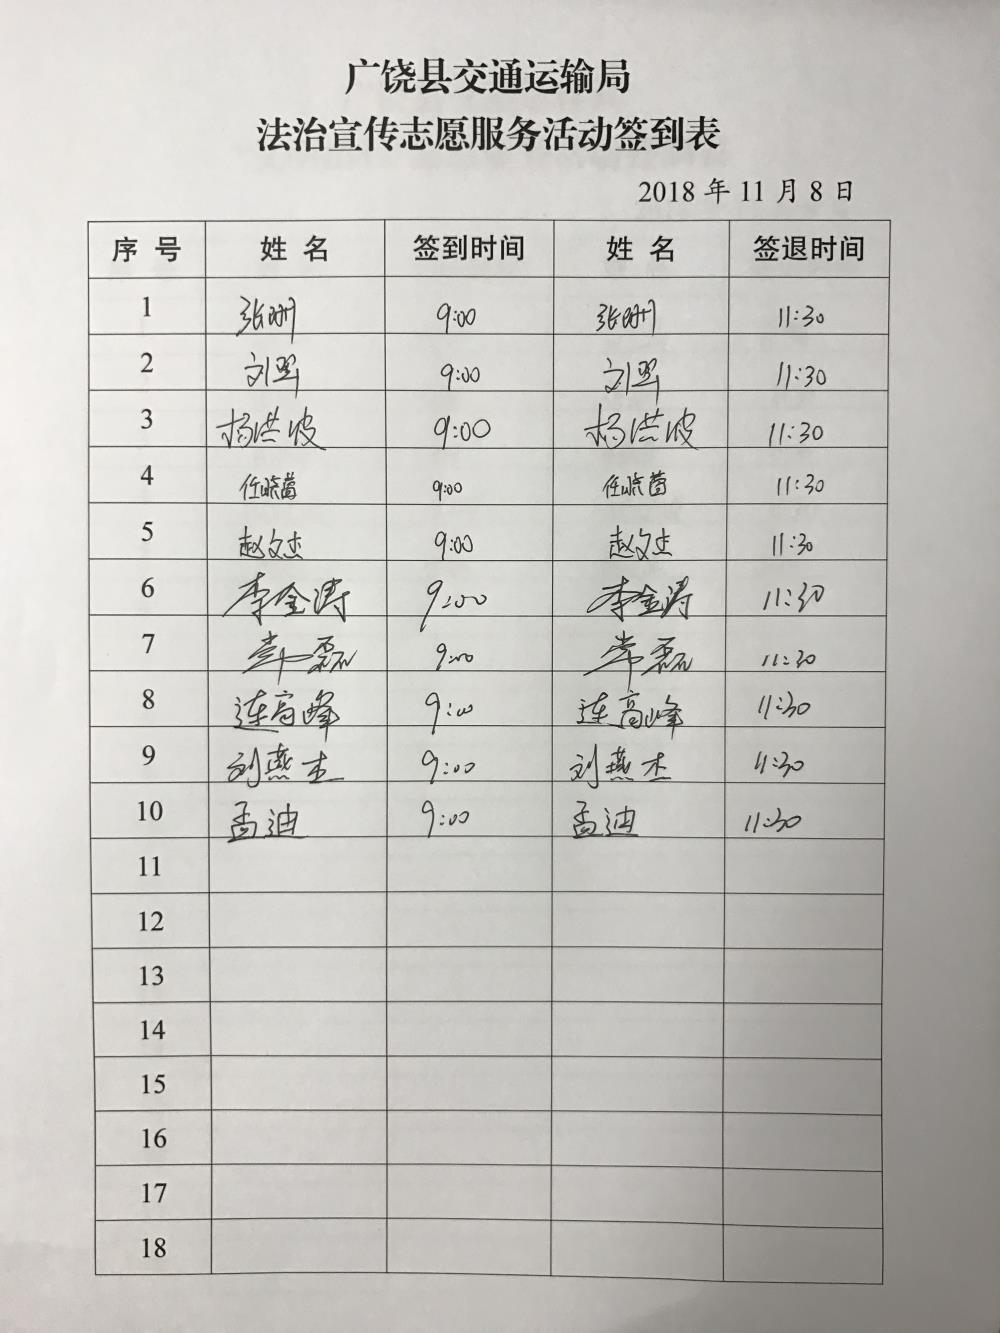 广饶县交通运输局
法治宣传志愿服务活动签到表
2018 年 11 月 8 日
序 号 姓 名 签到时间 姓 名 签退时间
1 9:00 11:30
2 9:00 11:30
3 杨洪波 9:00 杨洪波 11:30
4 任晓茵 9:00 任晓茵 11:30
5 赵文杰 9:00 赵文杰 11:30
6 李金涛 9:00 李金涛 11:30
7 常磊 9:00 常磊 11:30
8 连高峰 9:00 连高峰 11:30
9 刘燕杰 9:00 刘燕杰 11:30
10 孟迪 9:00 孟迪 11:30
11
12
13
14
15
16
17
18